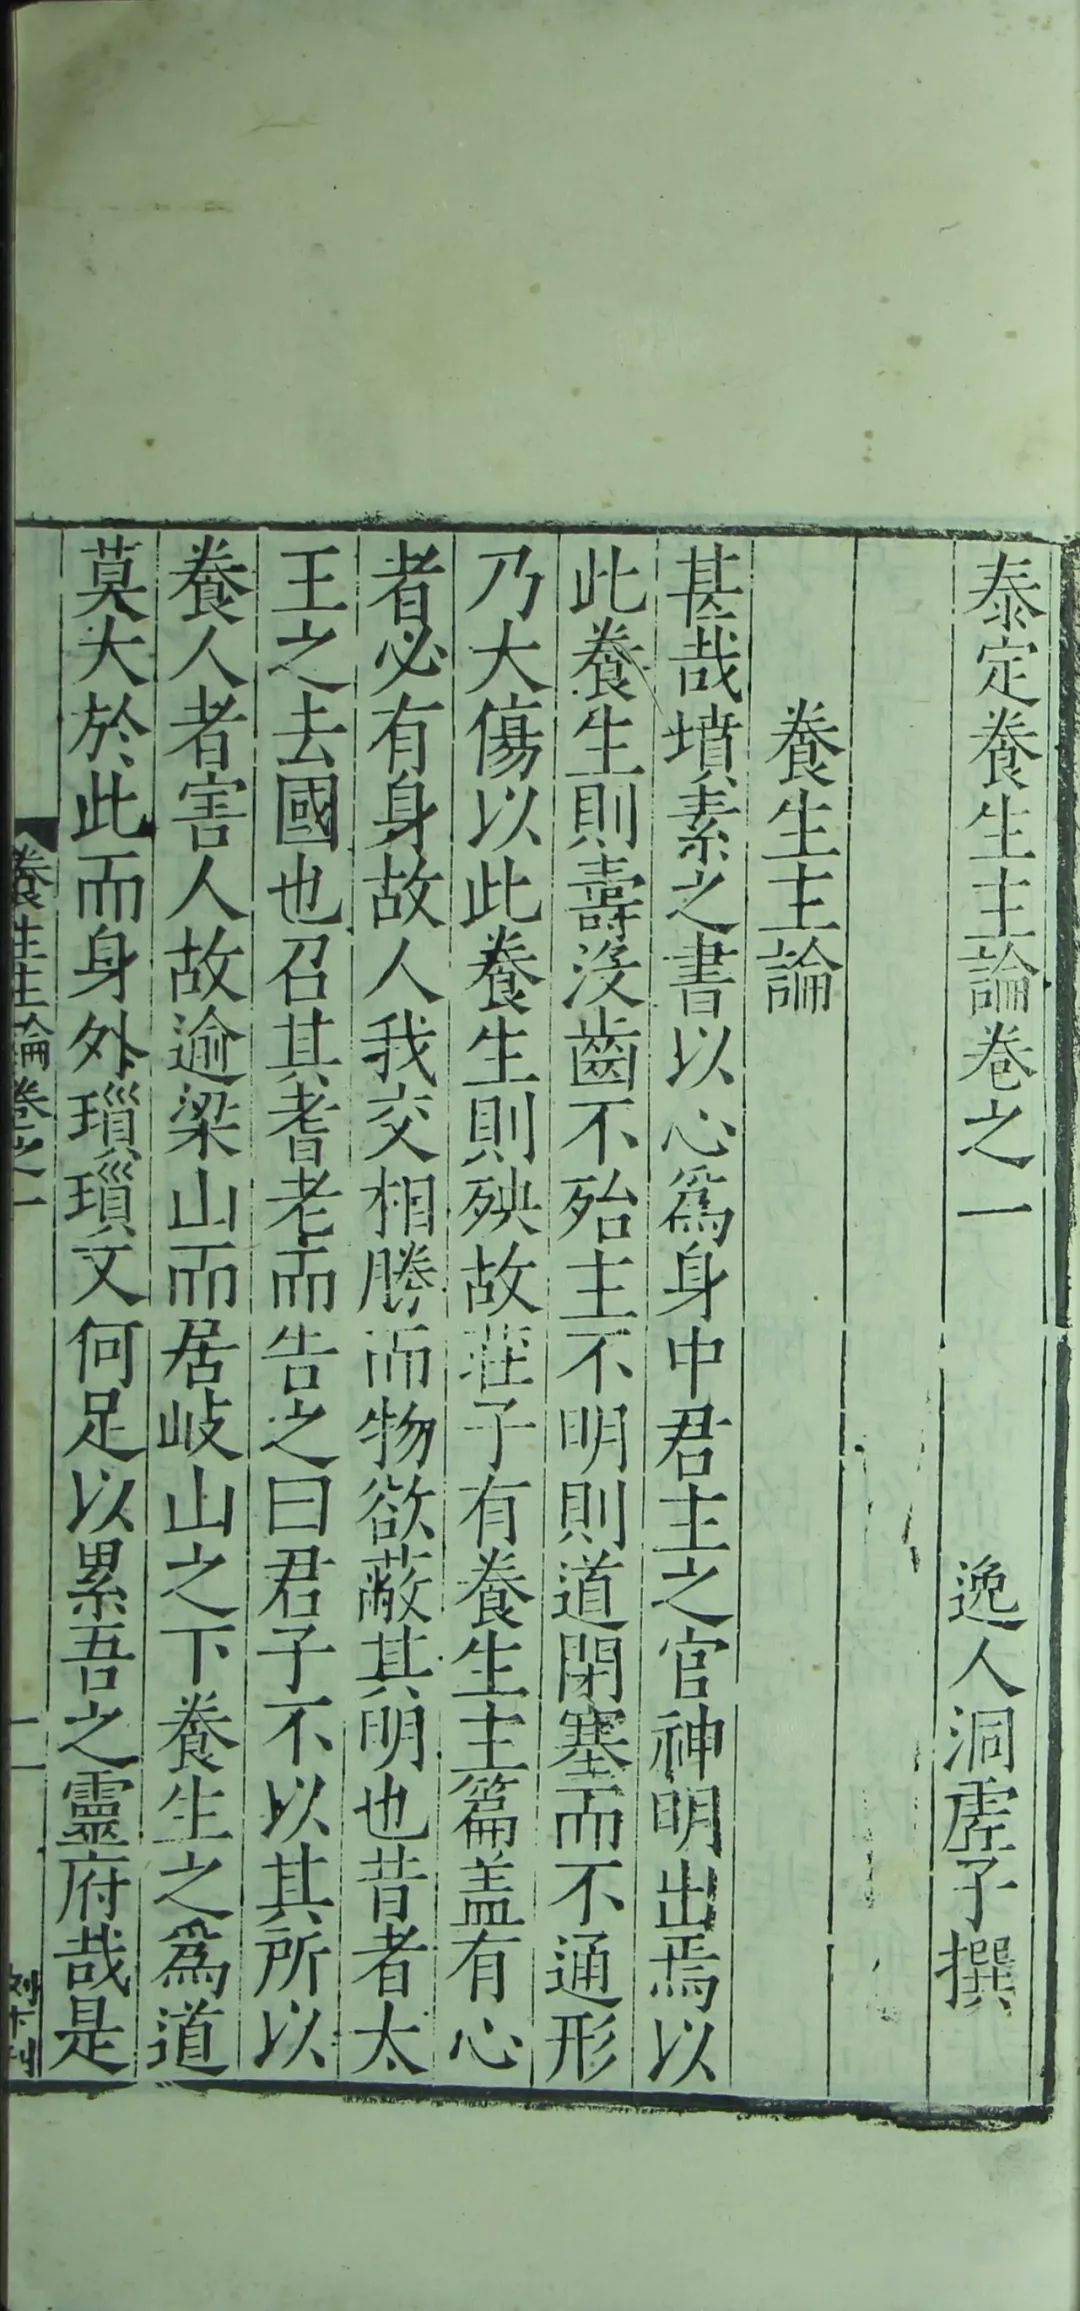 泰定養生主論卷之一
逸人洞虗子撰
養生主論
甚哉墳素之書以心爲身中君主之官神明出焉以
此養生則壽沒齒不殆主不明則道閉塞而不通形
乃大傷以此養生則殃故莊子有養生主篇盖有心
者必有身故人我交相勝而物欲蔽其明也昔者太
王之去國也召其耆老而告之曰君子不以其所以
養人者害人故逾梁山而居岐山之下養生之爲道
莫大於此而身外瑣瑣文何足以累吾之靈府哉是
養生主論卷之一